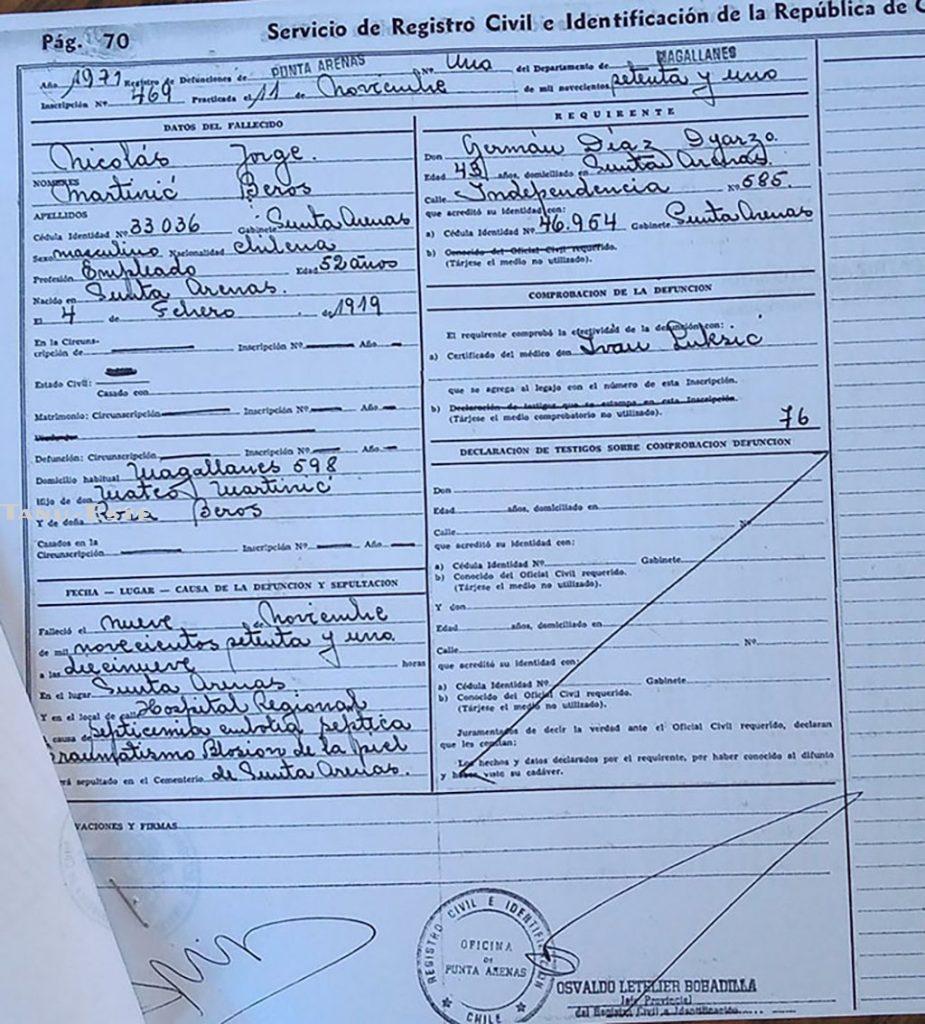 Pág. 70
Servicio de Registro Civil e Identificación de la República de C
Año 1971 Registro de Defunciones de PUNTA ARENAS Nº Uno del Departamento de MAGALLANES
Inscripción Nº 469 Practicada el 11 de Noviembre de mil novecientos setenta y uno
DATOS DEL FALLECIDO
Nicolás Jorge.
NOMBRES
Martinić Beros
APELLIDOS
Cédula Identidad Nº 33036 Gabinete Punta Arenas
Sexo masculino Nacionalidad chilena
Profesión Empleado Edad 52 años
Nacido en Punta Arenas.
El 4 de Febrero de 1919
En la Circuns-
cripción de Inscripción Nº Año
Estado Civil:
Casado con
Matrimonio: Circunscripción Inscripción Nº Año
Defunción: Circunscripción Inscripción Nº Año
Domicilio habitual Magallanes 598
Hijo de don Mateo Martinić
Y de doña Beros
Casados en la
Circunscripción Inscripción Nº Año
FECHA — LUGAR — CAUSA DE LA DEFUNCION Y SEPULTACION
Falleció el nueve de Noviembre
de mil novecientos setenta y uno
a las diecinueve horas
En el lugar Punta Arenas
Y en el local de calle Hospital Regional
causa de septicemia embolia séptica
traumatismo de la piel
rá sepultado en el Cementerio de Punta Arenas.
REQUIRENTE
Don Germán Díaz Oyarzo.
Edad 43 años, domiciliado en Punta Arenas.
Calle Independencia Nº 585.
que acreditó su identidad con:
a) Cédula Identidad Nº 46.954 Gabinete Punta Arenas
b) Conocido del Oficial Civil requerido.
(Tárjese el medio no utilizado).
COMPROBACION DE LA DEFUNCION
El requirente comprobó la efectividad de la defunción con:
a) Certificado del médico don Ivan Luksic
que se agrega al legajo con el número de esta Inscripción.
b) Declaración de testigos que se estampa en esta Inscripción.
(Tárjese el medio comprobatorio no utilizado). 76
DECLARACIÓN DE TESTIGOS SOBRE COMPROBACION DEFUNCION
Don
Edad años, domiciliado en
Calle Nº
que acreditó su identidad con:
a) Cédula Identidad Nº Gabinete
b) Conocido del Oficial Civil requerido.
(Tárjese el medio no utilizado).
Y don
Edad años, domiciliado en
Calle Nº
que acreditó su identidad con:
a) Cédula Identidad Nº Gabinete
b) Conocido del Oficial Civil requerido.
(Tárjese el medio no utilizado).
Juramentados de decir la verdad ante el Oficial Civil requerido, declaran
que les constan:
Los hechos y datos declarados por el requirente, por haber conocido al difunto
y haber visto su cadáver.
VACIONES Y FIRMAS
REGISTRO CIVIL E IDENTIFICACION
OFICINA
DE
PUNTA ARENAS
CHILE
OSVALDO LETELIER BOBADILLA
Jefe Provincial
del Registro Civil e Identificación